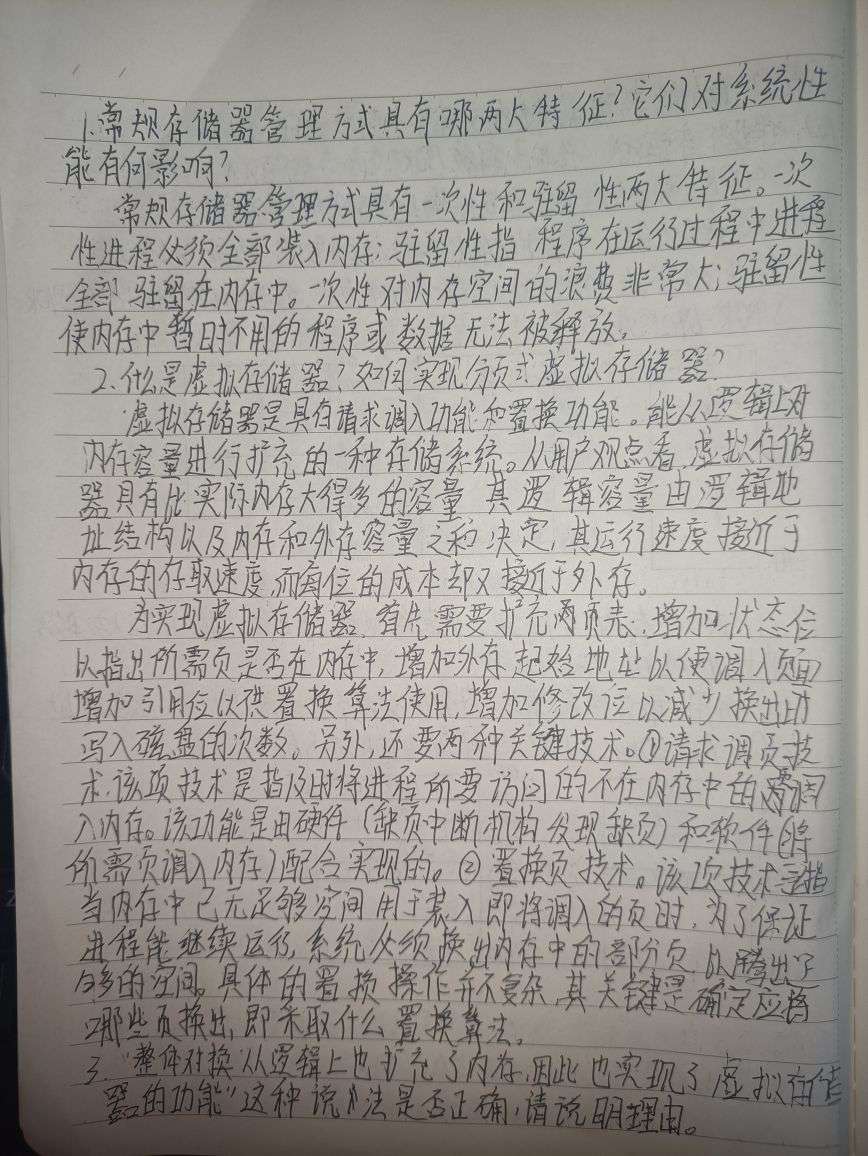 1.常规存储器管理方式具有哪两大特征?它们对系统性
能有何影响?
常规存储器管理方式具有一次性和驻留性两大特征。一次
性进程必须全部装入内存;驻留性指程序在运行过程中进程
全部驻留在内存中。一次性对内存空间的浪费非常大;驻留性
使内存中暂时不用的程序或数据无法被释放。
2.什么是虚拟存储器?如何实现分页式虚拟存储器?
虚拟存储器是具有请求调入功能和置换功能。能从逻辑上对
内存容量进行扩充的一种存储系统。从用户观点看,虚拟存储
器具有比实际内存大得多的容量,其逻辑容量由逻辑地
址结构以及内存和外存容量之和决定,其运行速度接近于
内存的存取速度,而每位的成本却又接近于外存。
为实现虚拟存储器,首先需要扩充页表:增加状态位
以指出所需页是否在内存中,增加外存起始地址以便调入页面
增加引用位以供置换算法使用,增加修改位以减少换出时
写入磁盘的次数。另外,还要两种关键技术。①请求调页技
术,该项技术是指及时将进程所要访问的不在内存中的页调
入内存。该功能是由硬件(缺页中断机构发现缺页)和软件(将
所需页调入内存)配合实现的。②置换页技术。该项技术是指
当内存中已无足够空间用于装入即将调入的页时,为了保证
进程能继续运行,系统必须换出内存中的部分页,以腾出足
够多的空间。具体的置换操作并不复杂,其关键是确定应将
哪些页换出,即采取什么置换算法。
3."整体对换从逻辑上也扩充了内存,因此也实现了虚拟存储
器的功能"这种说法是否正确,请说明理由。